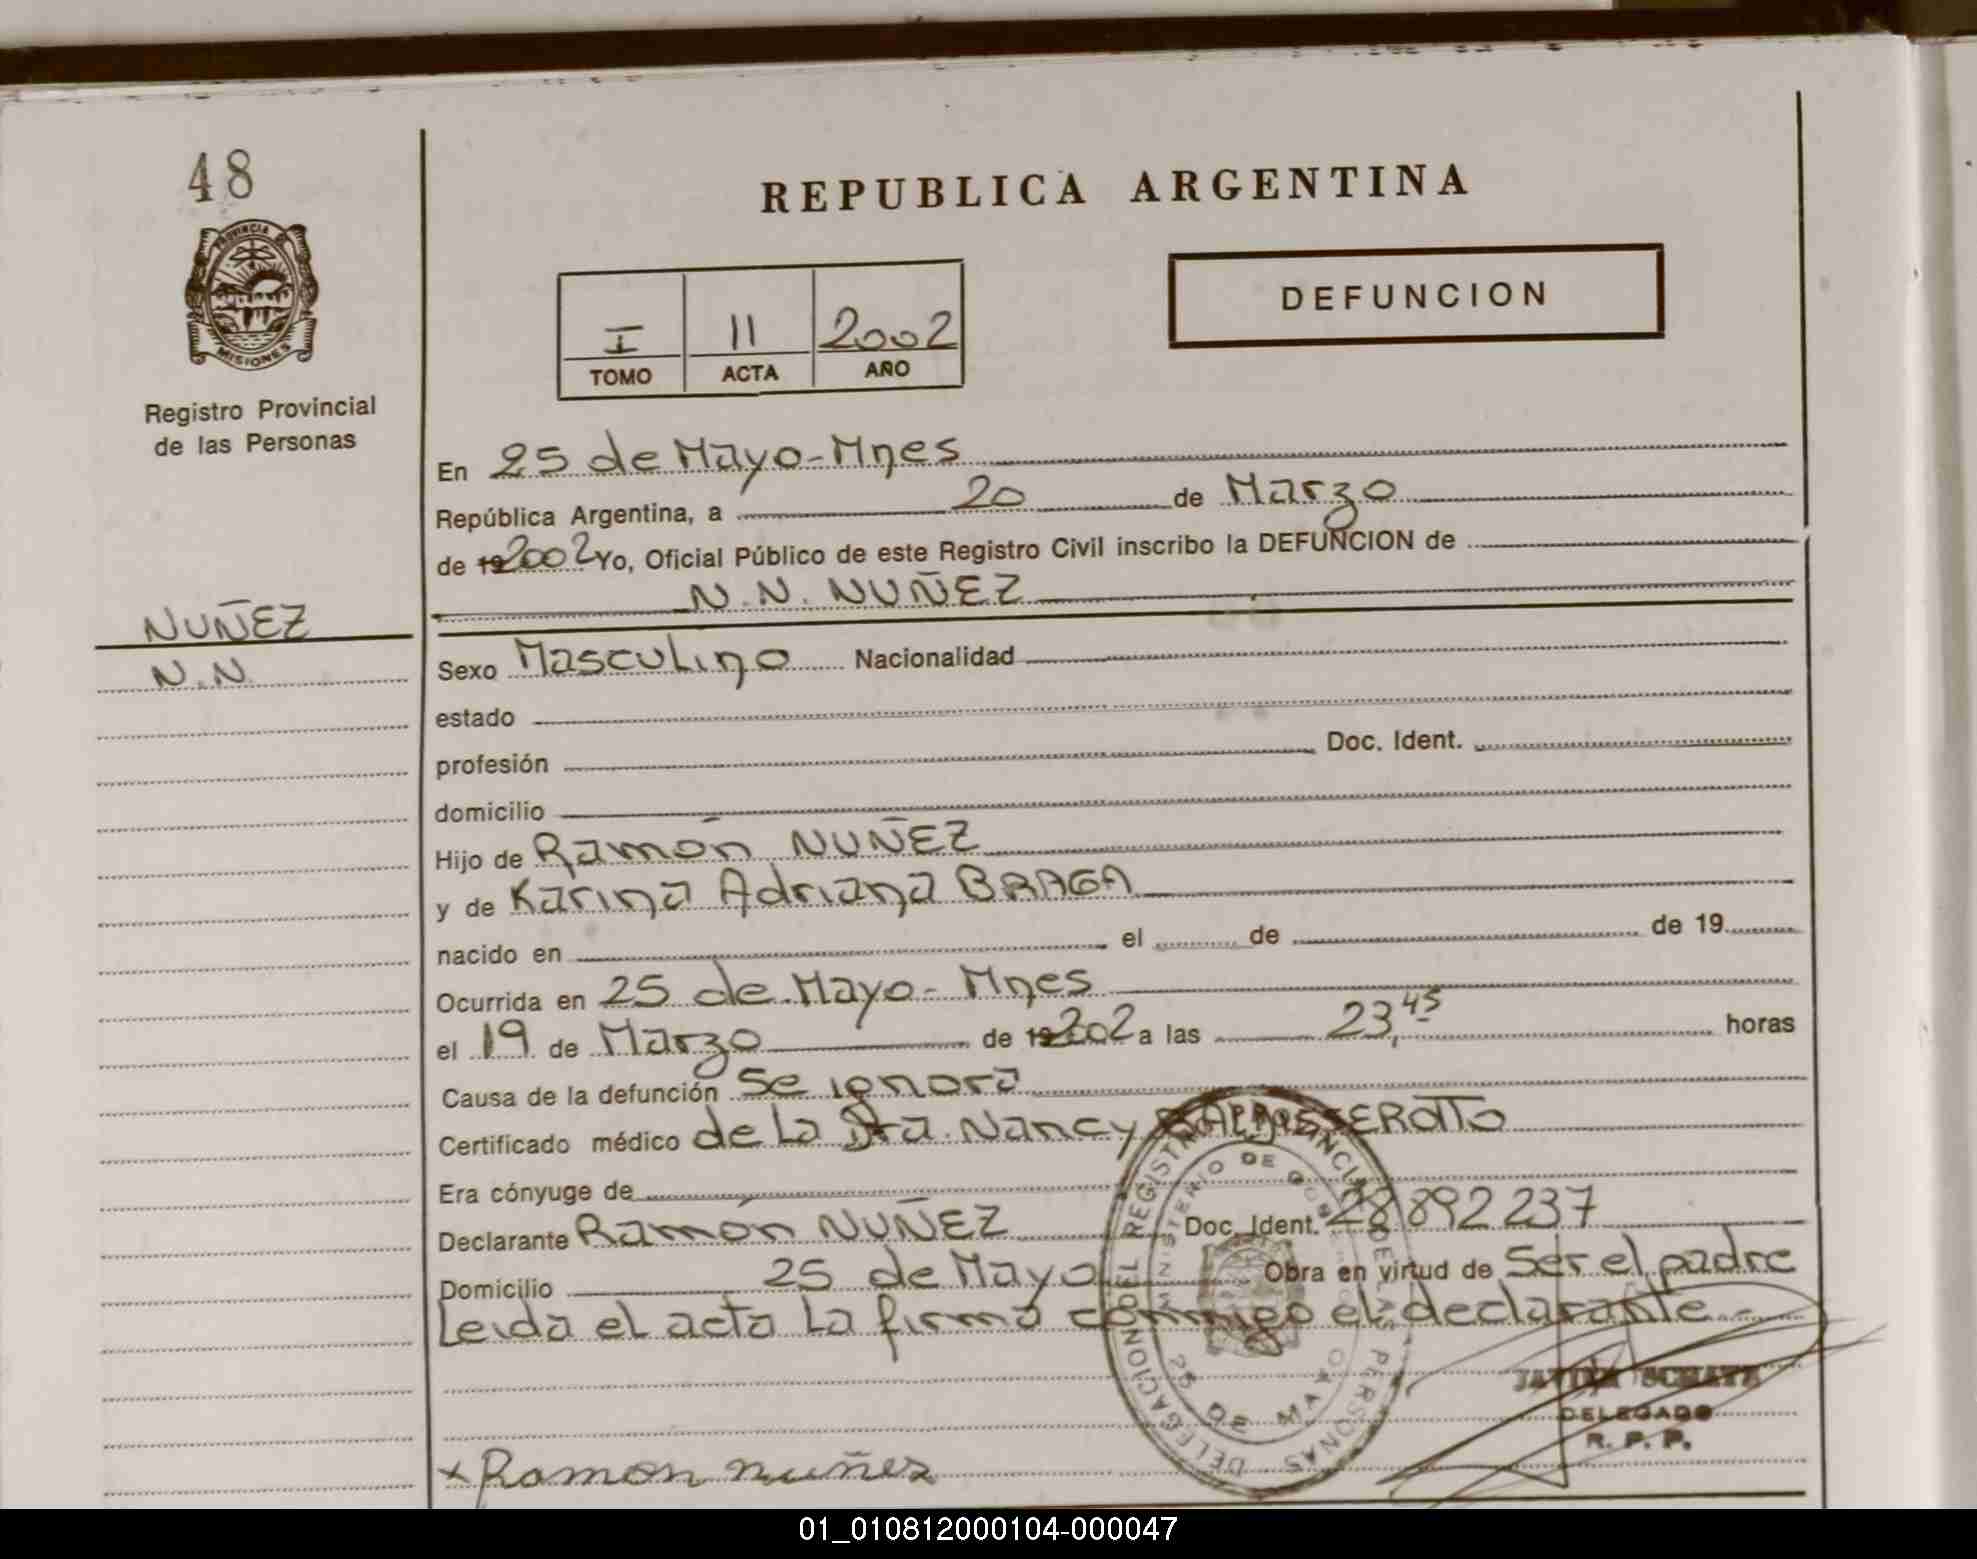 48
REPUBLICA ARGENTINA
PROVINCIA DE
MISIONES
Registro Provincial
de las Personas
I 11 2002
TOMO ACTA AÑO
DEFUNCION
En 25 de Mayo-Mnes
República Argentina, a 20 de Marzo
de 19 2002 Yo, Oficial Público de este Registro Civil inscribo la DEFUNCION de
N.N. NUÑEZ
NUÑEZ
N.N.
Sexo Masculino Nacionalidad
estado
profesión Doc. Ident.
domicilio
Hijo de Ramón NUÑEZ
y de Karina Adriana BRAGA
nacido en el de de 19
Ocurrida en 25 de Mayo- Mnes
el 19 de Marzo de 19 2002 a las 23,45 horas
Causa de la defunción Se ignora
Certificado médico de La Dra. Nancy BALDISSEROTTO
Era cónyuge de
Declarante Ramón NUÑEZ Doc. Ident. 28892237
Domicilio 25 de Mayo Obra en virtud de Ser el padre
Leida el acta La firma conmigo el declarante.-
DELEGACION DEL REGISTRO PROVINCIAL DE LAS PERSONAS
MINISTERIO DE GOBIERNO
25 DE MAYO
DELEGADO
R. P. P.
x Ramon nuñez
01_010812000104-000047